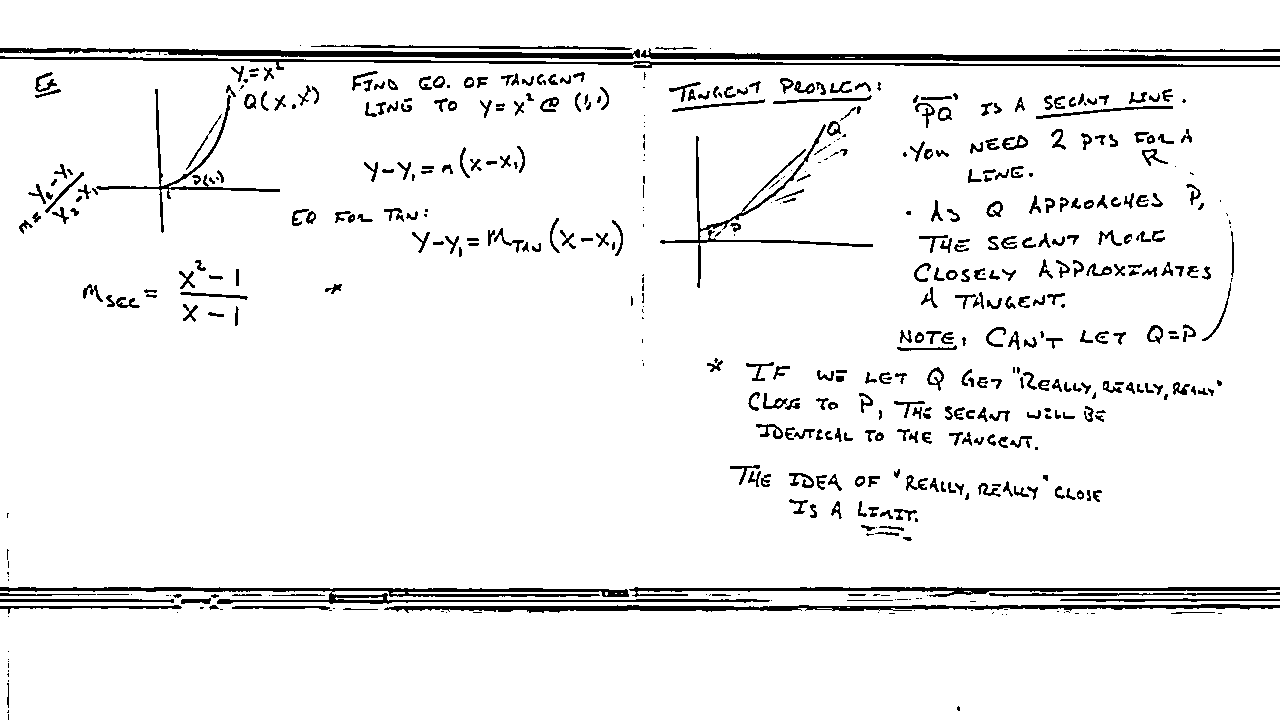 Ex
y=x²
Q(x,x²)
P(1,1)
m=y₂-y₁/x₂-x₁
FIND EQ. OF TANGENT
LINE TO y=x² @ (1,1)
y-y₁=m(x-x₁)
EQ FOR TAN:
y-y₁=m_TAN(x-x₁)
m_SEC = x²-1/x-1 *
TANGENT PROBLEM:
Q
P
"PQ" IS A SECANT LINE.
·YOU NEED 2 PTS FOR A
LINE.
· AS Q APPROACHES P,
THE SECANT MORE
CLOSELY APPROXIMATES
A TANGENT.
NOTE: CAN'T LET Q=P
* IF WE LET Q GET "REALLY, REALLY, REALLY"
CLOSE TO P, THE SECANT WILL BE
IDENTICAL TO THE TANGENT.
THE IDEA OF "REALLY, REALLY" CLOSE
IS A LIMIT.